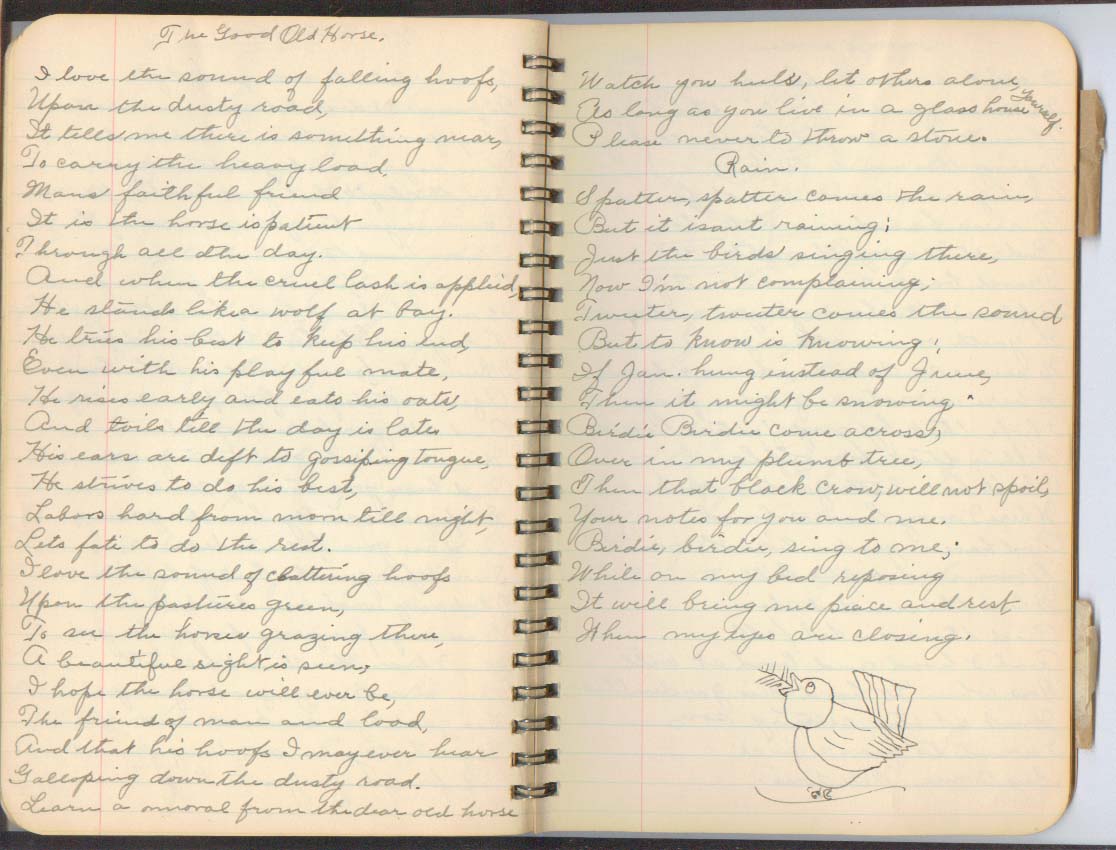 The Good Old Horse.
I love the sound of falling hoofs,
Upon the dusty road,
It tells me there is something near,
To carry the heavy load.
Mans' faithful friend
It is the horse is patient
Through all dthe day.
And when the cruel lash is applied,
He stands like a wolf at bay.
He tries his best to keep his end,
Even with his playful mate,
He rises early and eats his oats,
And toils till the day is late.
His ears are deft to gossiping tongue,
He strives to do his best,
Labors hard from morn till night,
Lets fate to do the rest.
I love the sound of clattering hoofs
Upon the pastures green,
To see the horses grazing there,
A beautiful sight is seen;
I hope the horse will ever be,
The friend of man and load,
And that his hoofs I may ever hear
Galloping down the dusty road.
Learn a moral from the dear old horse
Watch you heels, let others alone,
As long as you live in a glass house yourself.
Please never to throw a stone.
Rain.
Spatter, spatter comes the rain,
But it isant raining;
Just the birds' singing there,
Now I'm not complaining;
Tweeter, tweeter comes the sound
But to know is knowing;
If Jan. hung instead of June,
Then it might be snowing.
Birdie Birdie come across,
Over in my plumb tree,
Then that black crow, will not spoil,
Your notes for you and me.
Birdie, birdie, sing to me;
While on my bed reposing
It will bring me piece and rest,
When my eyes are closing.